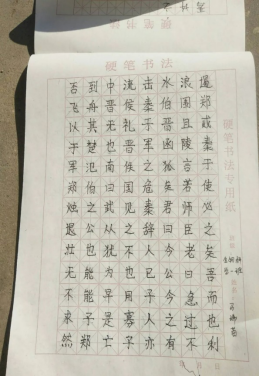 硬笔书法
否到中流击水浪遏
飞舟晋侯秦伯围郑
以其无礼于晋且贰
于楚也晋军函陵秦
军氾南佚之狐言于
郑伯曰国危矣若使
烛之武见秦君师必
退公从之辞曰臣之
壮也犹不人今老矣
无能为也已公曰吾
不能早用子今急而
来子是寡人之过也
然郑亡子亦有不利
硬笔书法专用纸